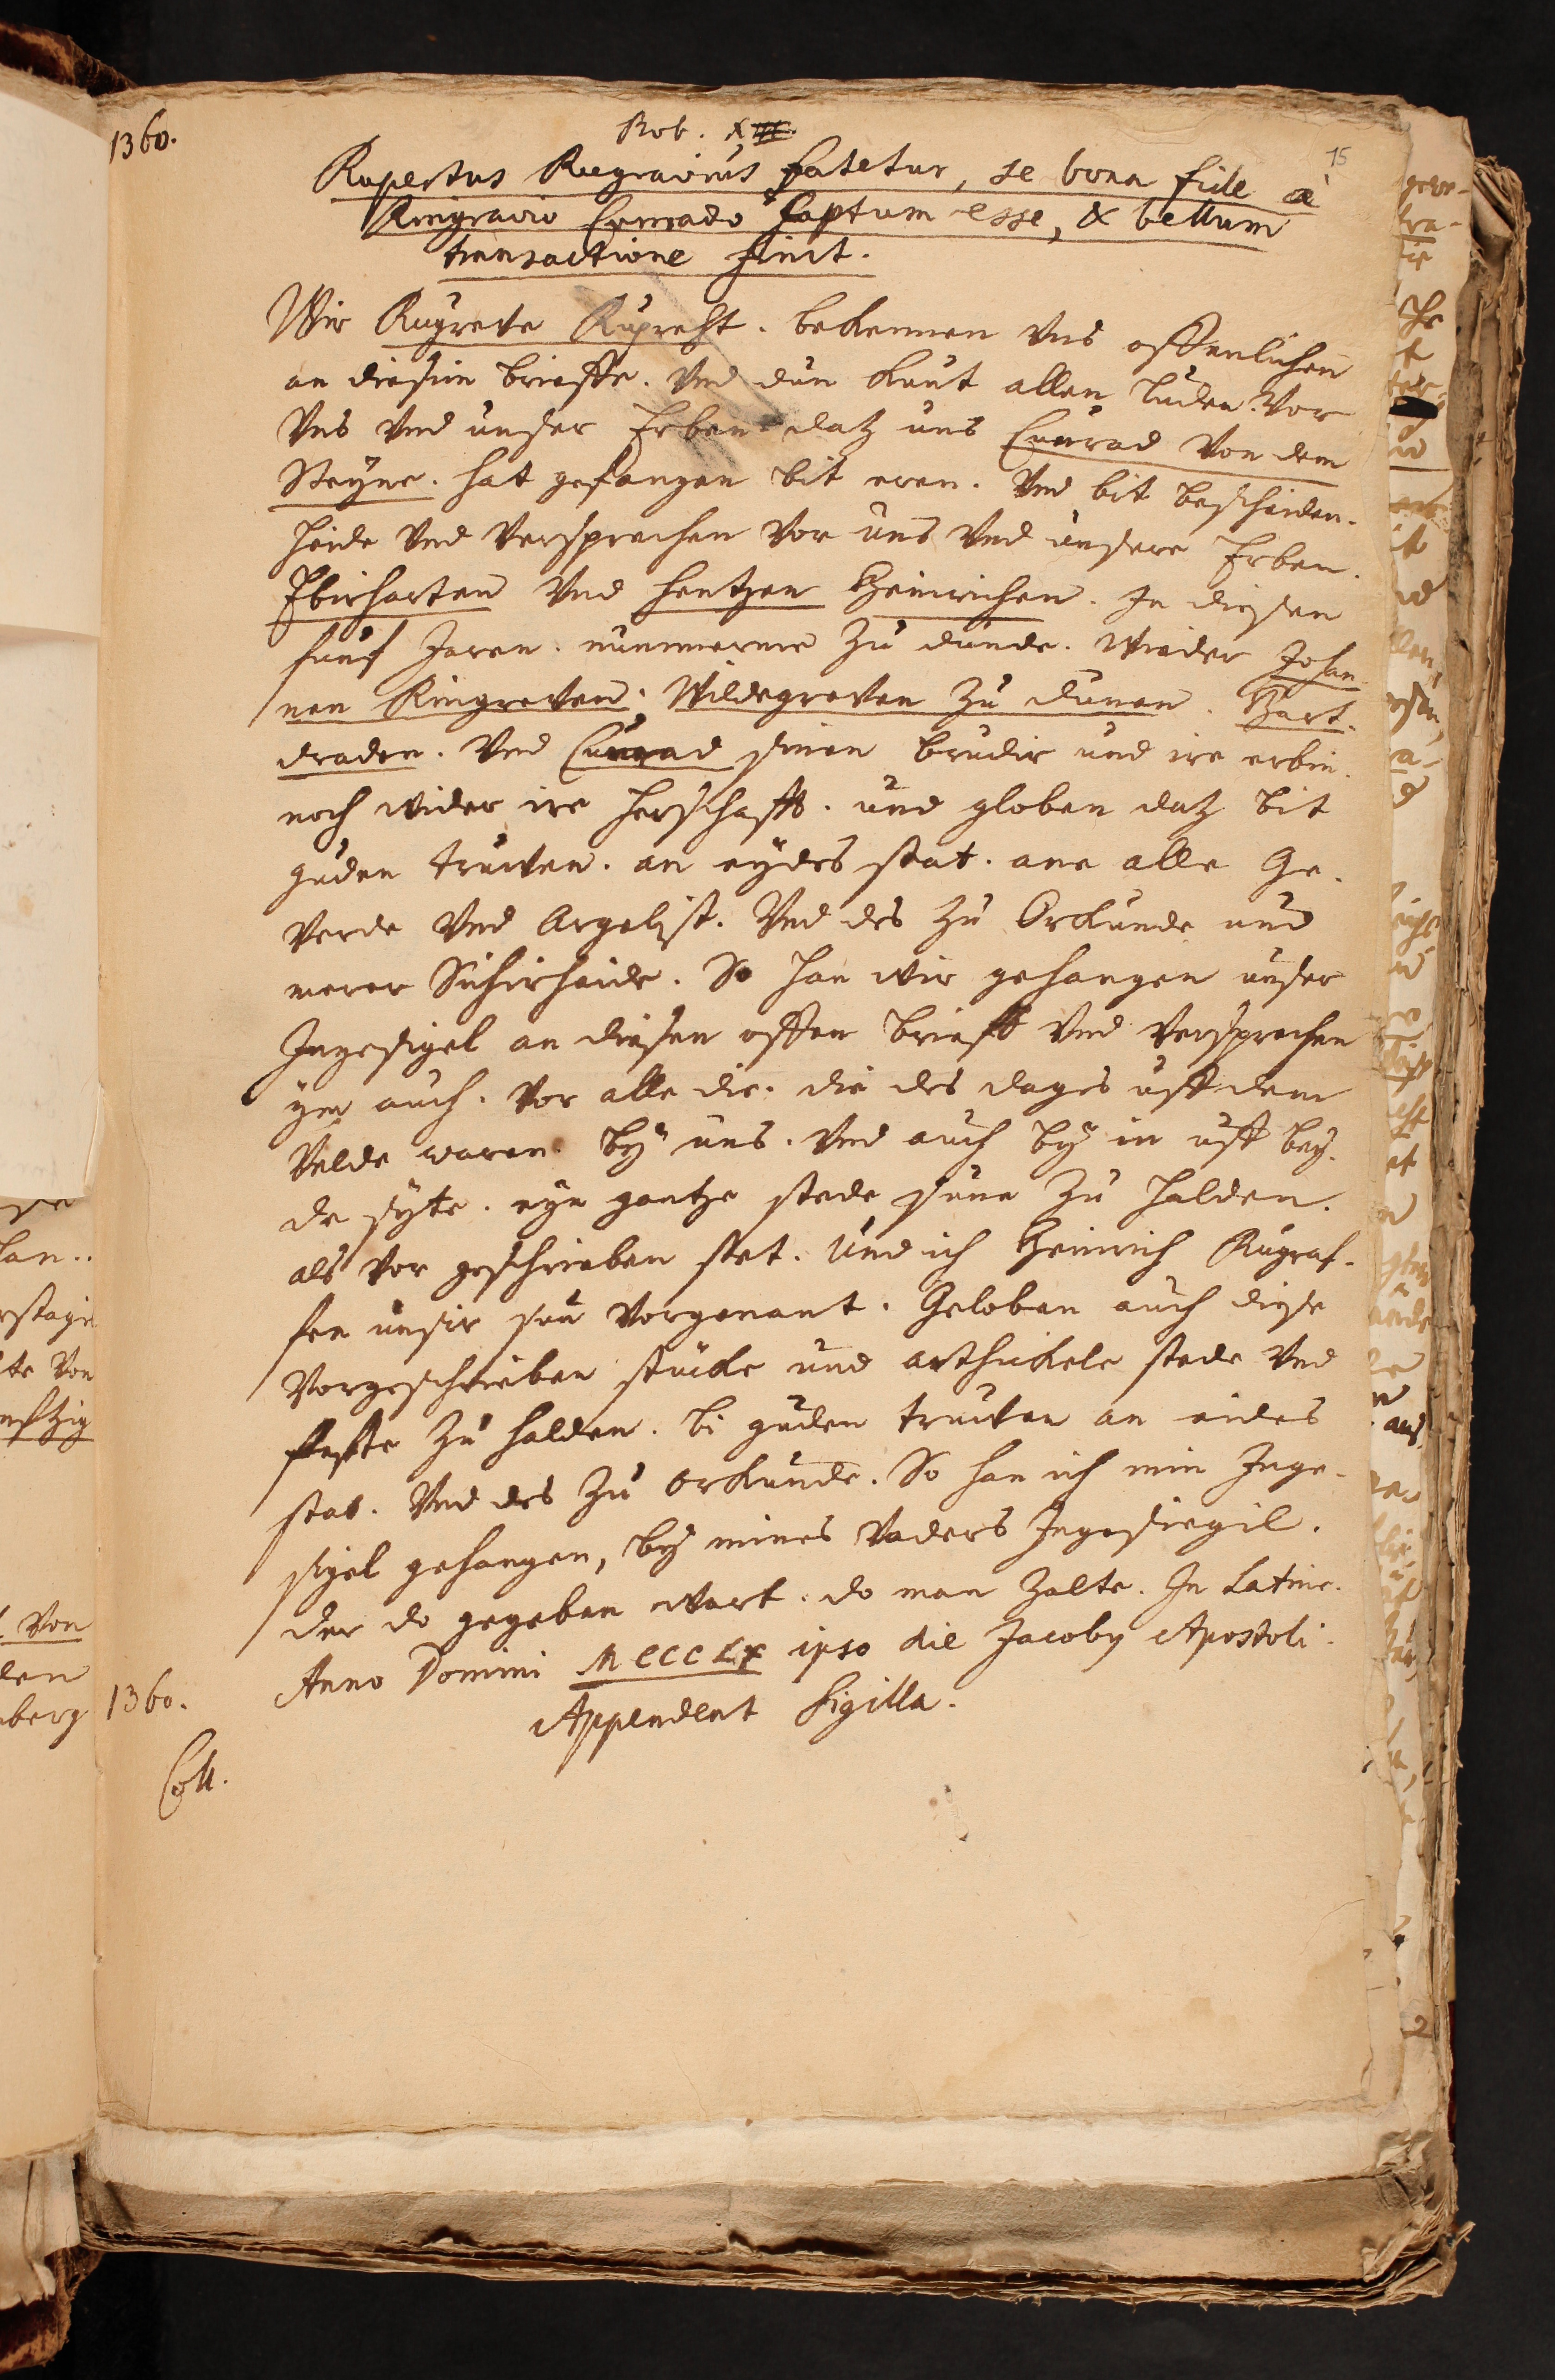 1360.
Rob. X
15
Rupertus Rugravius fatetur, se bona fide à
Ringravio Conrado Captum esse, & bellum
transactione finit.
Wir Rugreve Ruprecht. bekennen Vns offenlichen
an diesim brieffe. Vnd dun kunt allen luden. Vor
Vns Vnd unser Erben datz uns Cunrad Von dem
Steyne. hat gefangen bit eren. Vnd bit bescheiden-
heide Vnd Versprechen Vor uns Vnd unsere Erben.
Ebirharten Vnd Hentzen Heinrichen. In diesen
funf Jaren. nummerme zu dunde. Wieder Johan
nen Ringreven. Wildegreven zu Dunen. Hart.
draden. Vnd Cunrad sinen brudir und ire erbin.
noch wider ire herschafft. und globen datz bit
guden truwen. an eydes stat. ane alle Ge-
verde Vnd Argelist. Vnd des zu Orkunde und
merer Sichirheide. So han wir gehangen unser
Ingesigel an diesen offen brieff Vnd Versprechen
yen auch. Vor alle die. die des dages uff dem
Velde waren by uns. Vnd auch by in uff bey-
de syte. eyn gantze stede sune zu halden.
als Vor geschrieben stet. Und ich Heinrich Rugraf-
fen unsir sun Vorgenant. Geloben auch diese
Vorgeschrieben stucke und arthickele stede Vnd
feste zu halden. bi guden truwen an eides
stat. Vnd des zu orkunde. So han ich min Inge-
sigel gehangen, by mines Vaders Ingesiegil.
der do gegeben wart. do man zalte. In Latine.
Anno Domini MCCCLX ipso die Jacoby Apostoli.
1360.
Appendent Sigilla.
Coll.